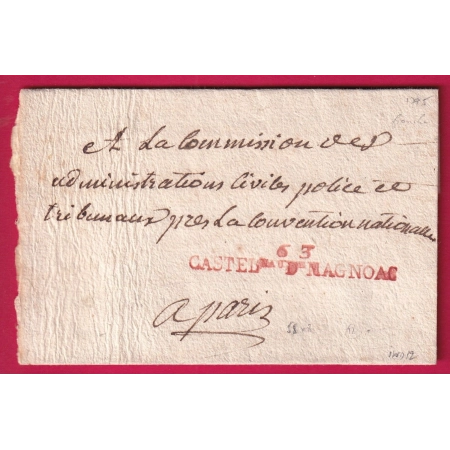 1795
A La Commission des
administrations Civiles police et
tribunaux pres La Convention nationalle
63
CASTEL D MAGNOAC
a paris